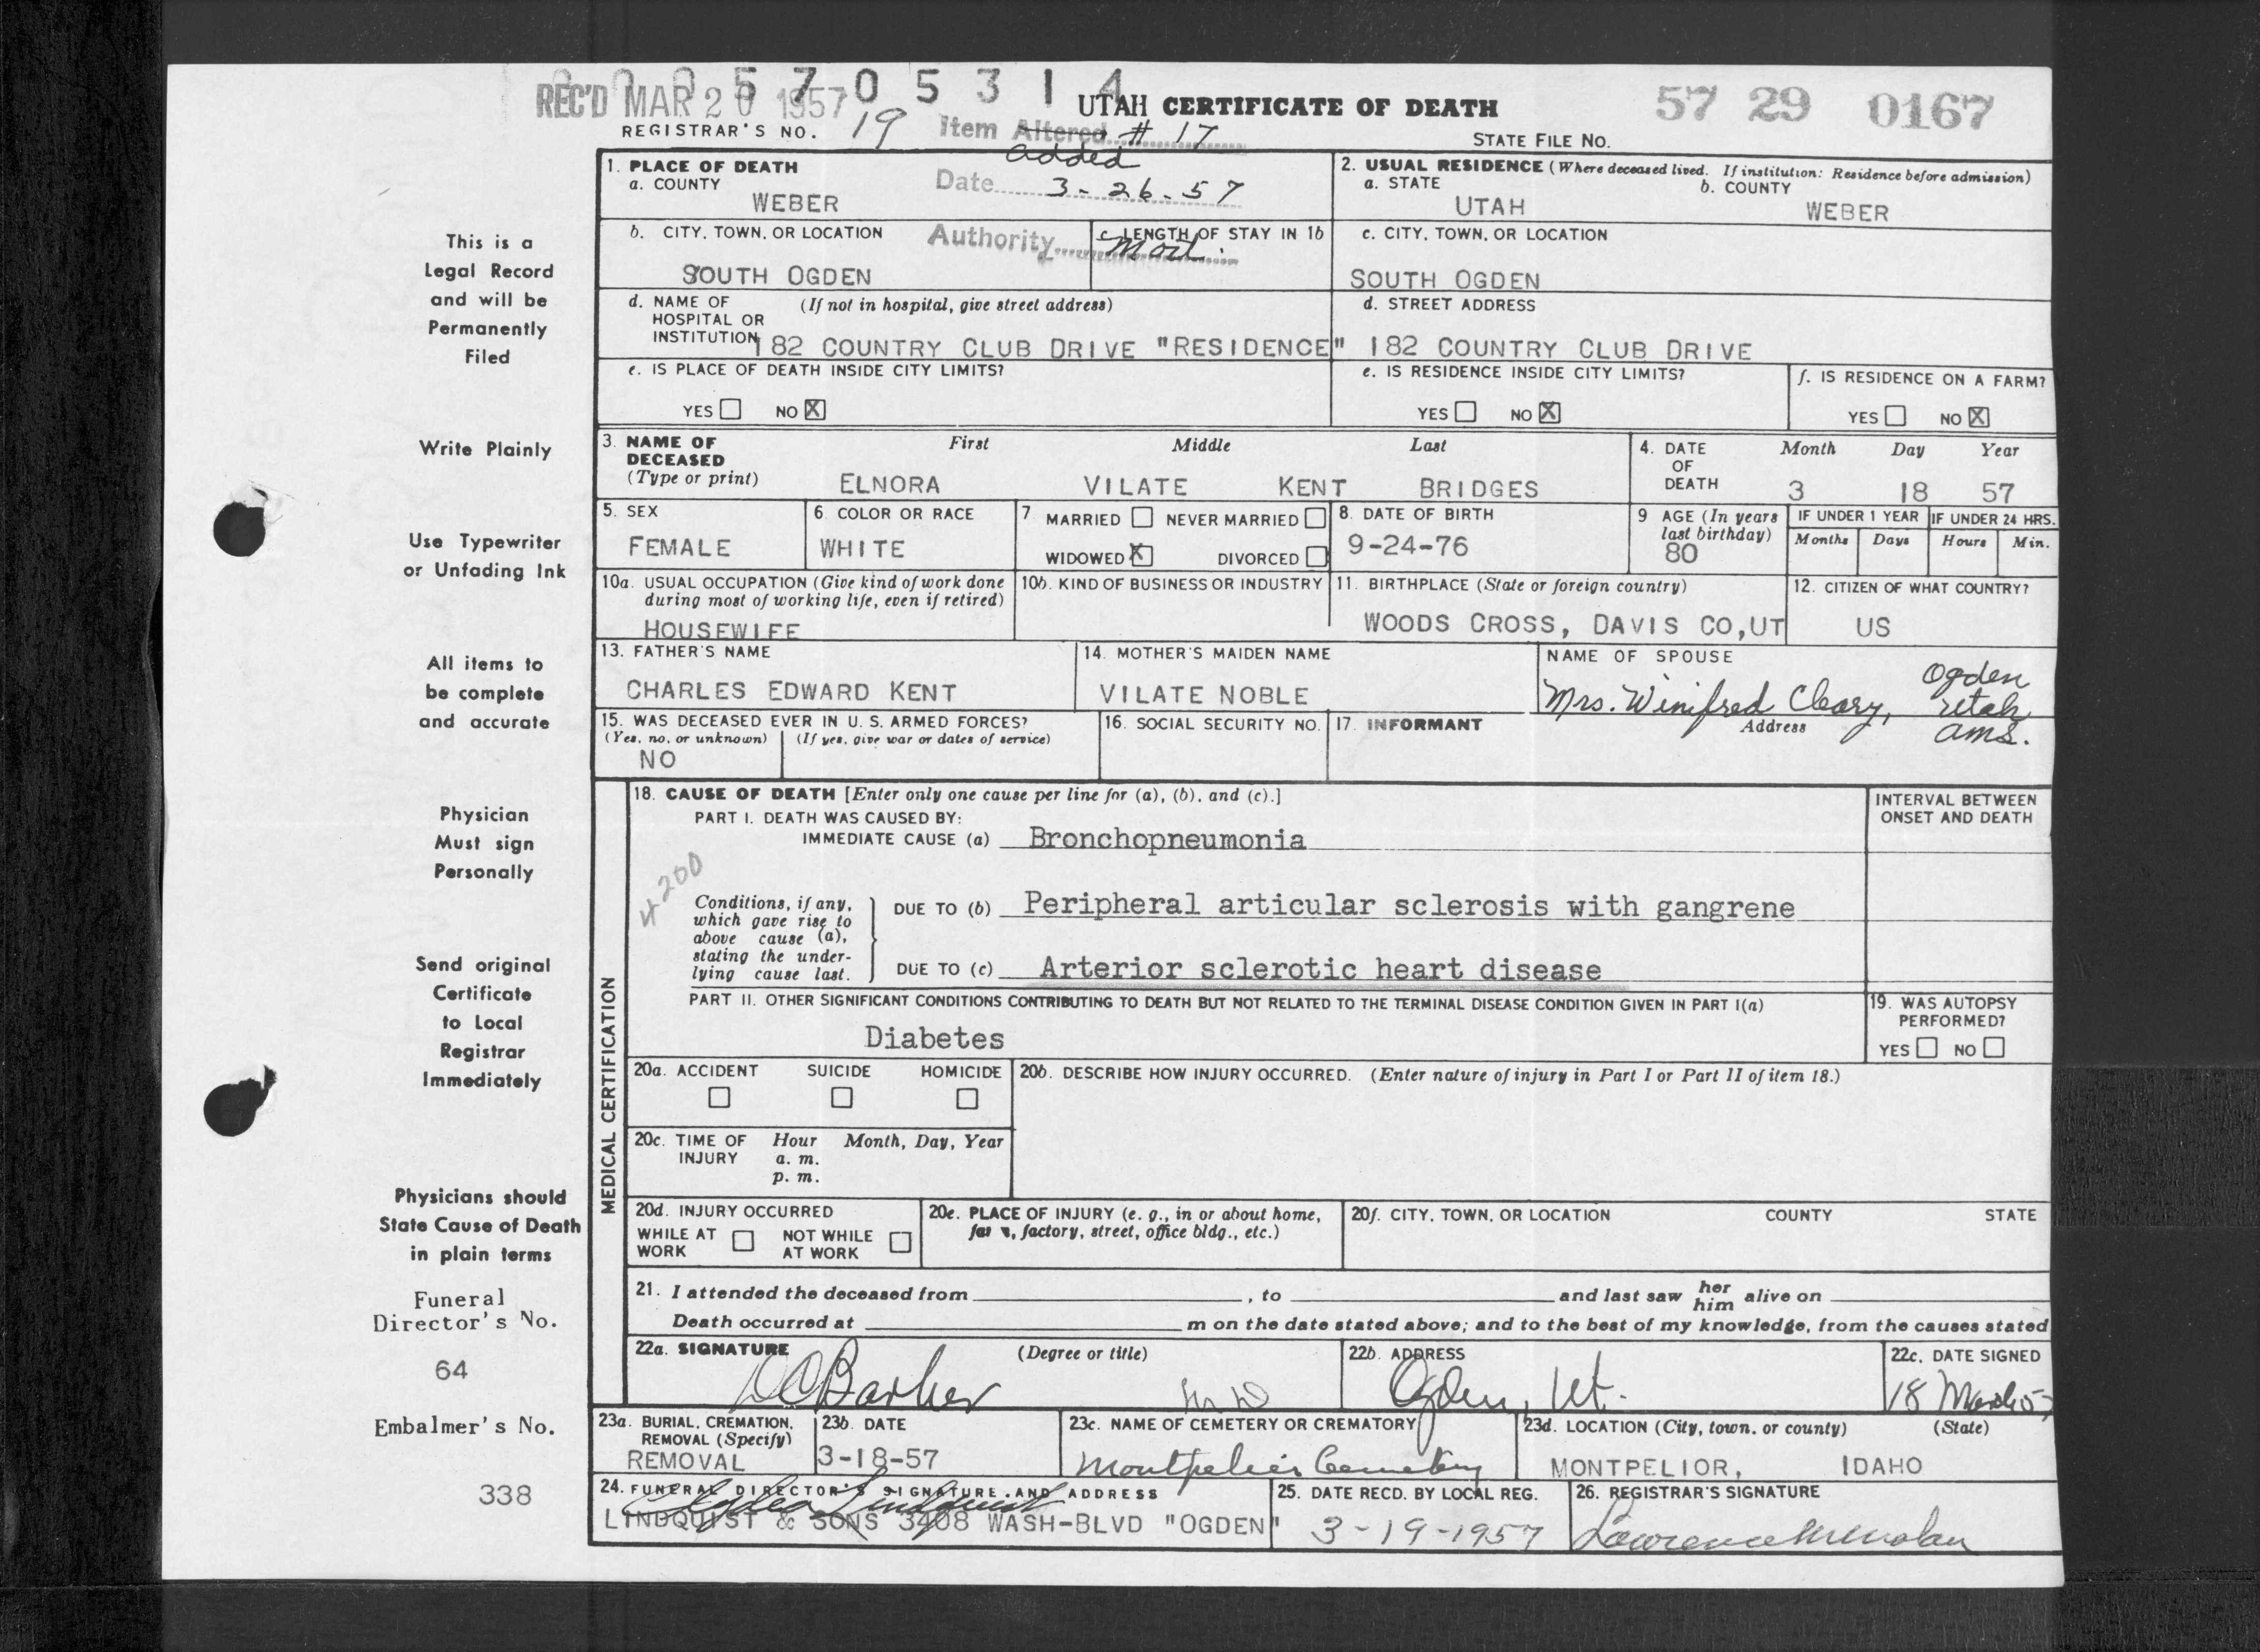 0 0 0 5 7 0 5 3 1 4
REC'D MAR 20 1957
UTAH CERTIFICATE OF DEATH
57 29 0167
REGISTRAR'S NO. 19
Item Altered # 17
added
STATE FILE NO.
Date 3-26-57
Authority Mort.
1. PLACE OF DEATH
a. COUNTY
WEBER
2. USUAL RESIDENCE (Where deceased lived. If institution: Residence before admission)
a. STATE b. COUNTY
UTAH WEBER
b. CITY, TOWN, OR LOCATION
SOUTH OGDEN
c. LENGTH OF STAY IN 1b
c. CITY, TOWN, OR LOCATION
SOUTH OGDEN
d. NAME OF (If not in hospital, give street address)
HOSPITAL OR
INSTITUTION 182 COUNTRY CLUB DRIVE "RESIDENCE"
d. STREET ADDRESS
182 COUNTRY CLUB DRIVE
e. IS PLACE OF DEATH INSIDE CITY LIMITS?
YES NO X
e. IS RESIDENCE INSIDE CITY LIMITS?
YES NO X
f. IS RESIDENCE ON A FARM?
YES NO X
3. NAME OF First Middle Last
DECEASED
(Type or print) ELNORA VILATE KENT BRIDGES
4. DATE Month Day Year
OF
DEATH 3 18 57
5. SEX
FEMALE
6. COLOR OR RACE
WHITE
7 MARRIED NEVER MARRIED
WIDOWED X DIVORCED
8. DATE OF BIRTH
9-24-76
9 AGE (In years
last birthday)
80
IF UNDER 1 YEAR IF UNDER 24 HRS.
Months Days Hours Min.
10a. USUAL OCCUPATION (Give kind of work done
during most of working life, even if retired)
HOUSEWIFE
10b. KIND OF BUSINESS OR INDUSTRY
11. BIRTHPLACE (State or foreign country)
WOODS CROSS, DAVIS CO,UT
12. CITIZEN OF WHAT COUNTRY?
US
13. FATHER'S NAME
CHARLES EDWARD KENT
14. MOTHER'S MAIDEN NAME
VILATE NOBLE
NAME OF SPOUSE
Mrs. Winifred Cleary, Ogden
Utah
ams.
15. WAS DECEASED EVER IN U. S. ARMED FORCES?
(Yes, no, or unknown) (If yes, give war or dates of service)
NO
16. SOCIAL SECURITY NO.
17. INFORMANT Address
MEDICAL CERTIFICATION
18. CAUSE OF DEATH [Enter only one cause per line for (a), (b), and (c).]
PART I. DEATH WAS CAUSED BY:
IMMEDIATE CAUSE (a) Bronchopneumonia
INTERVAL BETWEEN
ONSET AND DEATH
4200
Conditions, if any,
which gave rise to
above cause (a),
stating the under-
lying cause last.
DUE TO (b) Peripheral articular sclerosis with gangrene
DUE TO (c) Arterior sclerotic heart disease
PART II. OTHER SIGNIFICANT CONDITIONS CONTRIBUTING TO DEATH BUT NOT RELATED TO THE TERMINAL DISEASE CONDITION GIVEN IN PART I(a)
Diabetes
19. WAS AUTOPSY
PERFORMED?
YES NO
20a. ACCIDENT SUICIDE HOMICIDE
20b. DESCRIBE HOW INJURY OCCURRED. (Enter nature of injury in Part I or Part II of item 18.)
20c. TIME OF Hour Month, Day, Year
INJURY a. m.
p. m.
20d. INJURY OCCURRED
WHILE AT NOT WHILE
WORK AT WORK
20e. PLACE OF INJURY (e. g., in or about home,
factory, street, office bldg., etc.)
20f. CITY, TOWN, OR LOCATION COUNTY STATE
21. I attended the deceased from , to and last saw her him alive on
Death occurred at m on the date stated above; and to the best of my knowledge, from the causes stated
22a. SIGNATURE (Degree or title)
D C Barker M D
22b. ADDRESS
Ogden, Ut.
22c. DATE SIGNED
18 March 57
23a. BURIAL, CREMATION,
REMOVAL (Specify)
REMOVAL
23b. DATE
3-18-57
23c. NAME OF CEMETERY OR CREMATORY
Montpelier Cemetery
23d. LOCATION (City, town, or county) (State)
MONTPELIOR, IDAHO
24. FUNERAL DIRECTOR'S SIGNATURE AND ADDRESS
LINDQUIST & SONS 3408 WASH-BLVD "OGDEN"
25. DATE RECD. BY LOCAL REG.
3-19-1957
26. REGISTRAR'S SIGNATURE
Lawrence
This is a
Legal Record
and will be
Permanently
Filed
Write Plainly
Use Typewriter
or Unfading Ink
All items to
be complete
and accurate
Physician
Must sign
Personally
Send original
Certificate
to Local
Registrar
Immediately
Physicians should
State Cause of Death
in plain terms
Funeral
Director's No.
64
Embalmer's No.
338